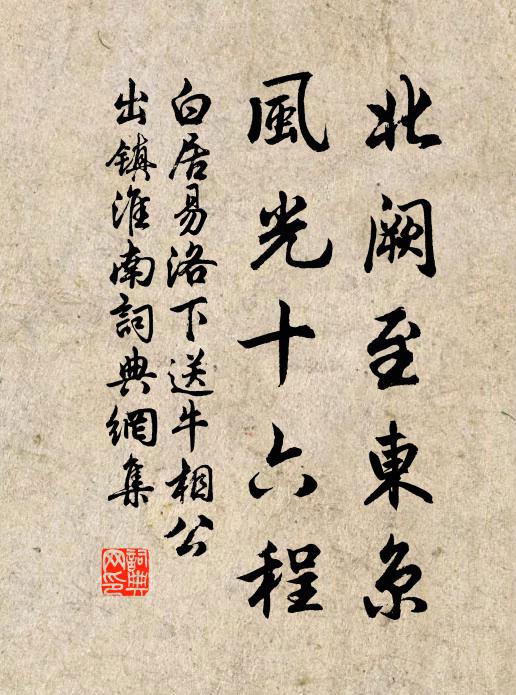 北阙至東京
風光十六程
白居易洛下送牛相公
出镇淮南詞典網集
詞典
网印